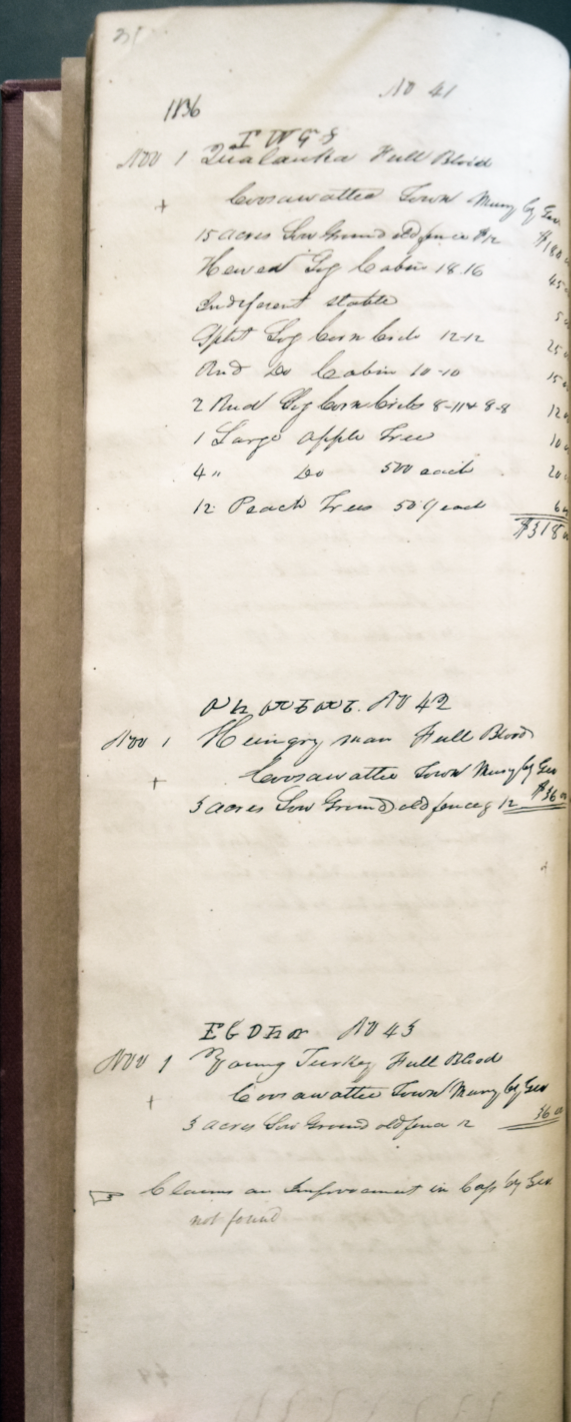 No 41
1836
Ꮖ Ꮃ Ꮹ Ꭶ
Nov 1 Qualanka Full Blood
+ Coosawattee Town Murry Cy Geo
15 acres Low Ground old fence $12 $180
Hewed Log Cabin 18.16 45
Indiferent stable 5
Split Log Corn Crib 12-12 25
Rnd Do Cabin 10-10 15
2 Rnd Log Corn Cribs 8-11 & 8-8 12
1 Large apple Tree 10
4 " Do 500 each 20
12 Peach Trees 50 each 6
$318
No 42
Nov 1 Hungry man Full Blood
+ Coosawattee Town Murry Cy Geo
3 acres Low Ground old fence 12 $36
No 43
Nov 1 Young Turkey Full Blood
+ Coosawattee Town Murry Cy Geo
3 acres Low Ground old fence 12 36
Claims an Improvement in Cass Cy Geo
not found